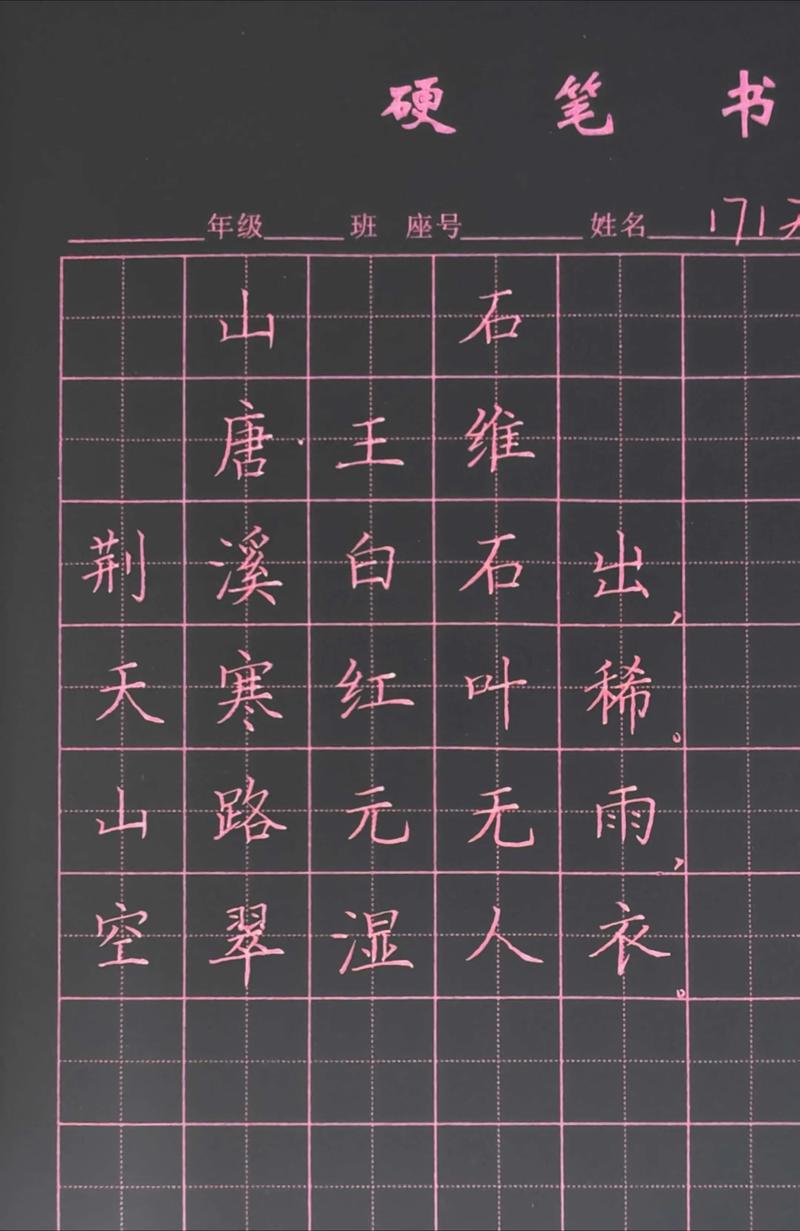 硬笔书
年级 班 座号 姓名 171天
山石
唐·王维
荆溪白石出,
天寒红叶稀。
山路元无雨,
空翠湿人衣。